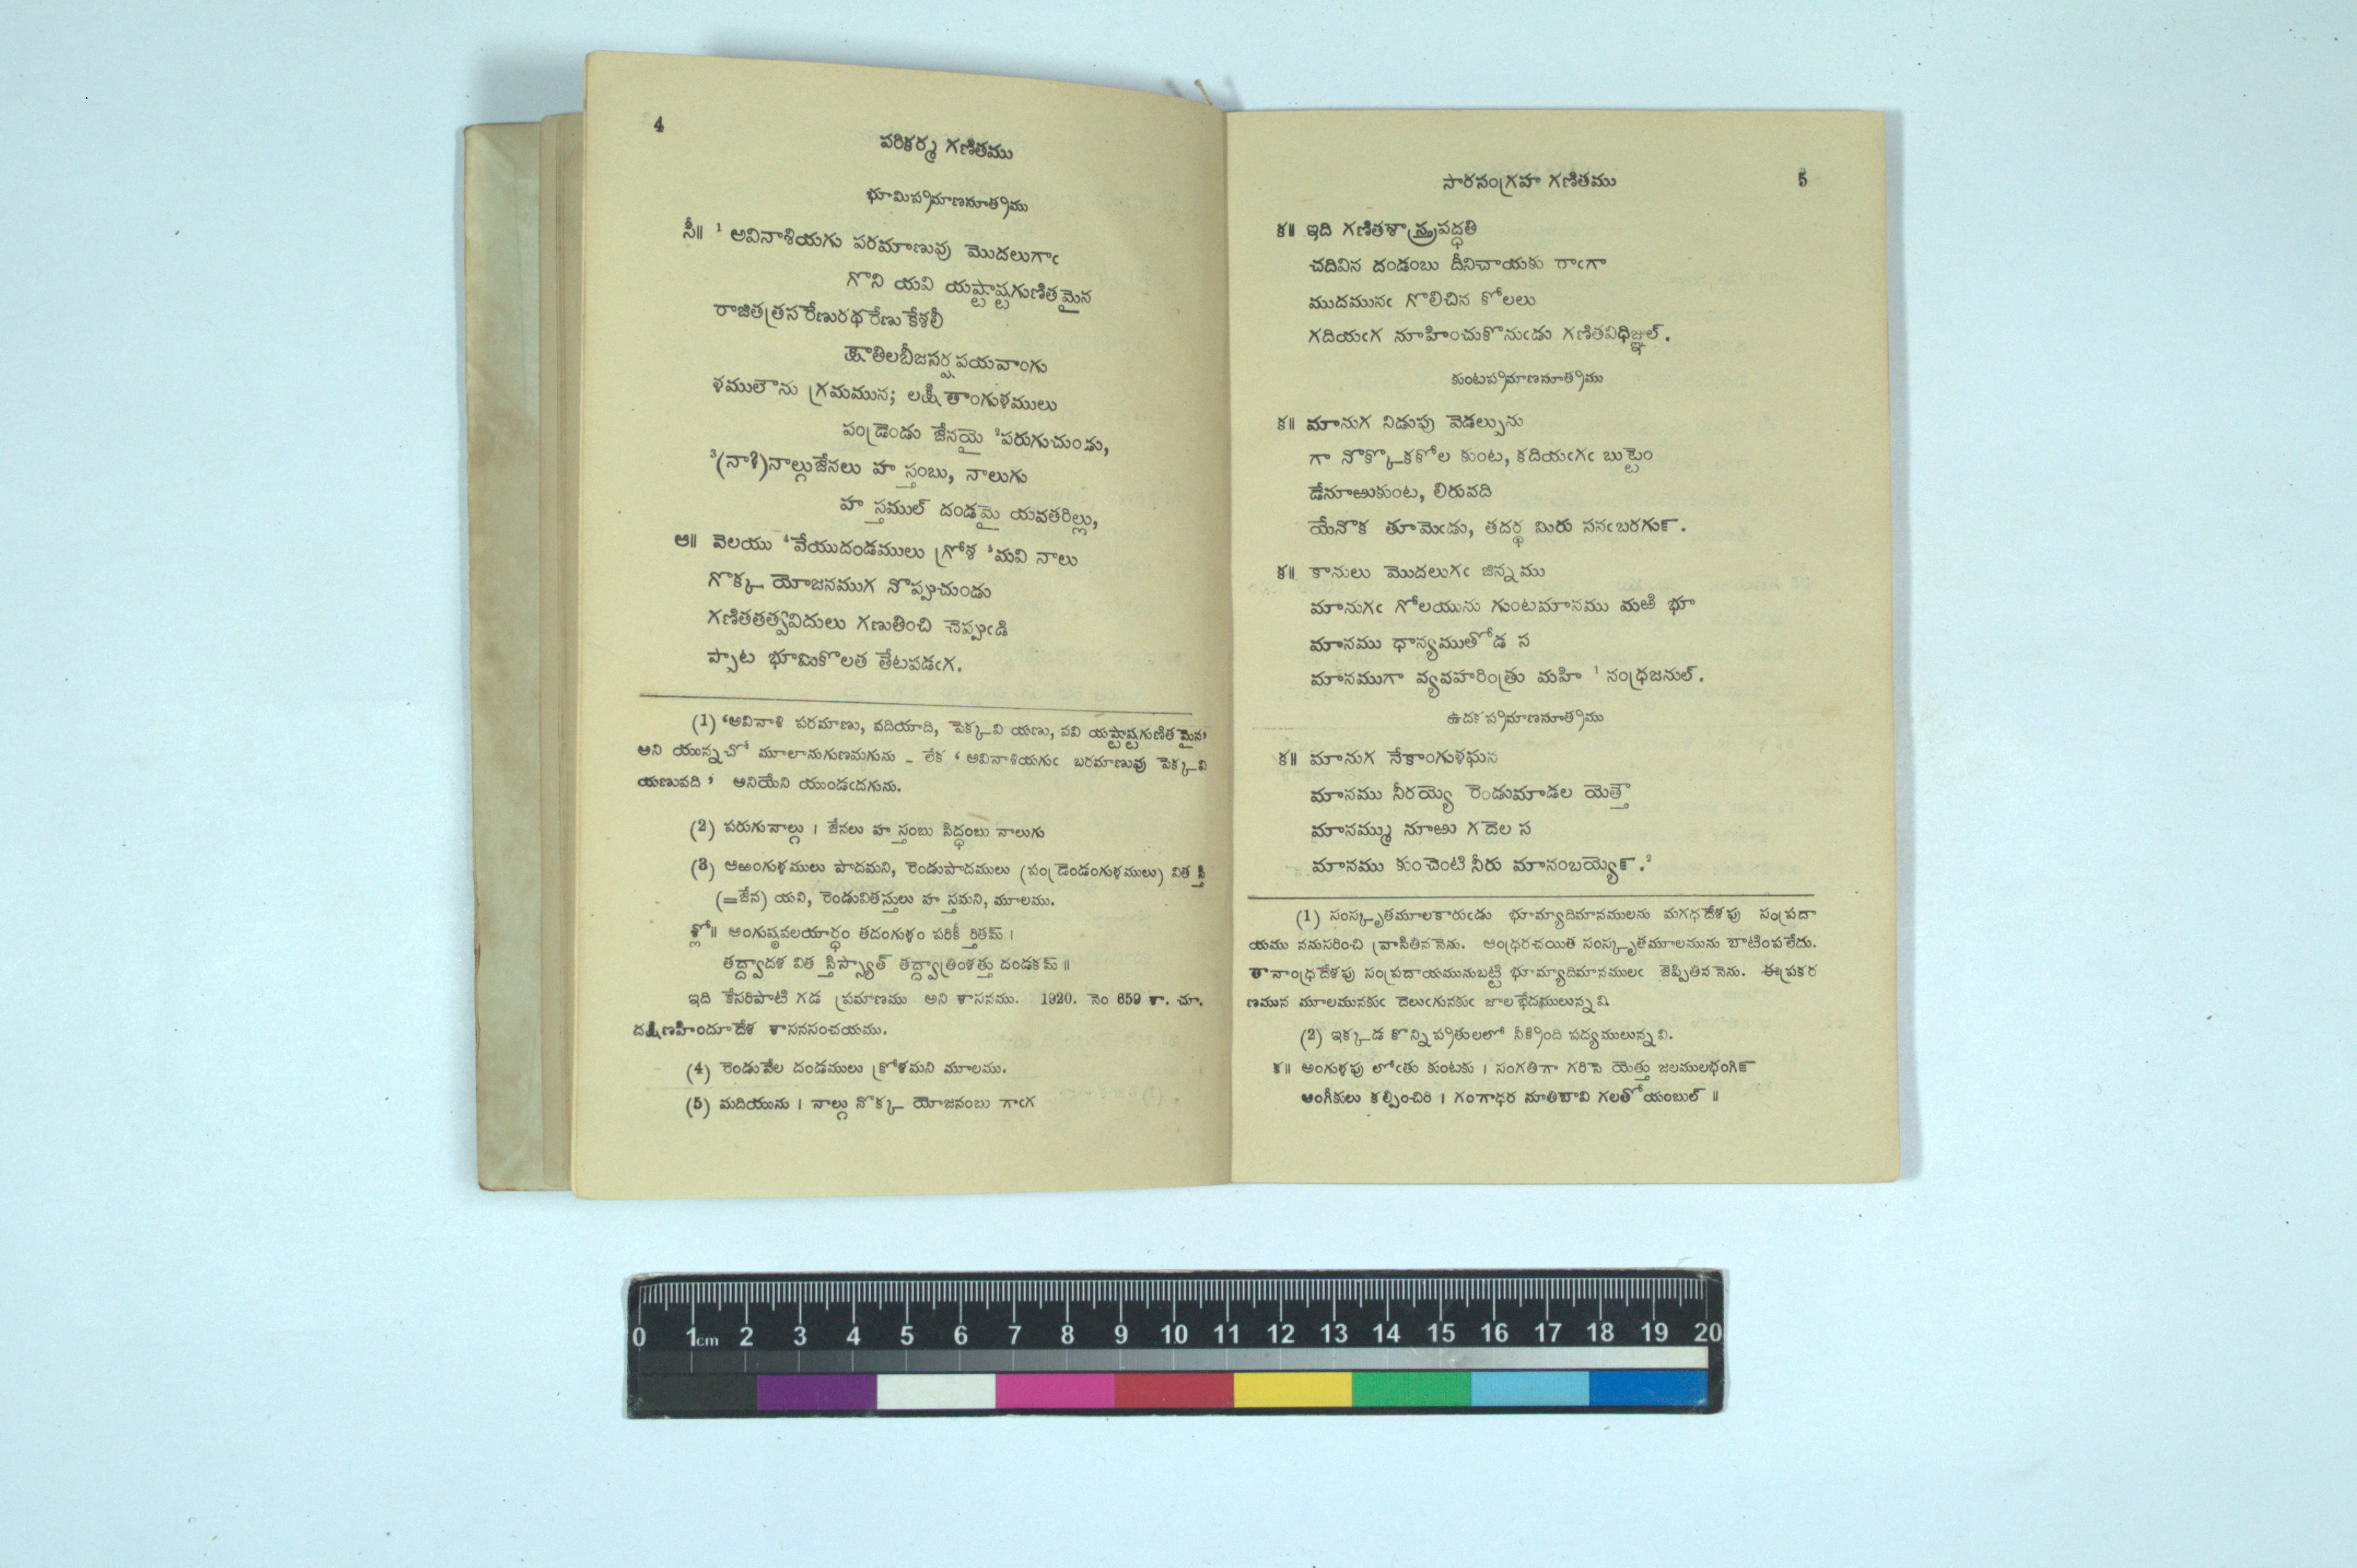 4
పరికర్మ గణితము
భూమిపరిమాణసూత్రము
సీ॥ ¹ అవినాశియగు పరమాణువు మొదలుగాఁ
గొని యవి యష్టాష్టగుణితమైన
రాజితత్రసరేణురథరేణుకేశలీ
క్షాతిలబీజసర్షపయవాంగు
ళములౌను గ్రమమున; లక్షితాంగుళములు
పండ్రెండు జేనయై ²పరుగుచుండు,
³(నాశి)నాల్గుజేనలు హస్తంబు, నాలుగు
హస్తముల్ దండమై యవతరిల్లు,
ఆ॥ వెలయు ⁴వేయుదండములు గ్రోశ ⁵మవి నాలు
గొక్క యోజనముగ నొప్పుచుండు
గణితతత్వవిదులు గణుతించి చెప్పుఁడి
ప్పాట భూమికొలత తేటపడఁగ.
(1) ‘అవినాశి పరమాణు, వదియాది, పెక్కవి యణు, వవి యష్టాష్టగుణితమైన’
అని యున్నచో మూలానుగుణమగును - లేక ‘ అవినాశియగుఁ బరమాణువు పెక్కవి
యణువది ’ అనియేని యుండఁదగును.
(2) పరుగునాల్గు । జేనలు హస్తంబు సిద్ధంబు నాలుగు
(3) ఆఱంగుళములు పాదమని, రెండుపాదములు (పండ్రెండంగుళములు) వితస్తి
(=జేన) యని, రెండువితస్తులు హస్తమని, మూలము.
శ్లో॥ అంగుష్ఠవలయార్ధం తదంగుళం పరికీర్తితమ్ ।
తద్ద్వాదశ వితస్తిస్స్యాత్ తద్ద్వాత్రింశత్తు దండకమ్ ॥
ఇది కేసరిపాటి గడ ప్రమాణము అని శాసనము. 1920. నెం 659 శా. చూ.
దక్షిణహిందూదేశ శాసనసంచయము.
(4) రెండువేల దండములు క్రోశమని మూలము.
(5) మదియును । నాల్గు నొక్క యోజనంబు గాఁగ
సారసంగ్రహ గణితము
5
క॥ ఇది గణితశాస్త్రపద్ధతి
చదివిన దండంబు దీనిచాయకు రాఁగా
ముదమునఁ గొలిచిన కోలలు
గదియఁగ నూహించుకొనుఁడు గణితవిధిజ్ఞుల్.
కుంటపరిమాణసూత్రము
క॥ మానుగ నిడుపు వెడల్పును
గా నొక్కొకకోల కుంట, కదియఁగఁ బుట్టెం
డేనూఱుకుంట, లిరువది
యేనొక తూమెఁడు, తదర్థ మిరుసనఁబరగున్.
క॥ కానులు మొదలుగఁ జిన్నము
మానుగఁ గోలయును గుంటమానము మఱి భూ
మానము ధాన్యముతోడ స
మానముగా వ్యవహరింత్రు మహి ¹ నంధ్రజనుల్.
ఉదకపరిమాణసూత్రము
క॥ మానుగ నేకాంగుళఘన
మానము నీరయ్యె రెండుమాడల యెత్తౌ
మానమ్ము నూఱు గదెల స
మానము కుంచెంటినీరు మానంబయ్యెన్.²
(1) సంస్కృతమూలకారుఁడు భూమ్యాదిమానములను మగధదేశపు సంప్రదా
యము ననుసరించి వ్రాసితిననెను. ఆంధ్రరచయిత సంస్కృతమూలమును బాటింపలేదు.
తానాంధ్రదేశపు సంప్రదాయమునుబట్టి భూమ్యాదిమానములఁ జెప్పితిననెను. ఈప్రకర
ణమున మూలమునకుఁ దెలుఁగునకుఁ జాలభేదములున్నవి.
(2) ఇక్కడ కొన్నిప్రతులలో నీక్రింది పద్యములున్నవి.
క॥ అంగుళపు లోఁతు కుంటకు । సంగతిగా గరిసె యెత్తు జలములభంగిన్
అంగీకులు కల్పించిరి । గంగాధర నూతిబావి గలతోయంబుల్ ॥
0 1cm 2 3 4 5 6 7 8 9 10 11 12 13 14 15 16 17 18 19 20